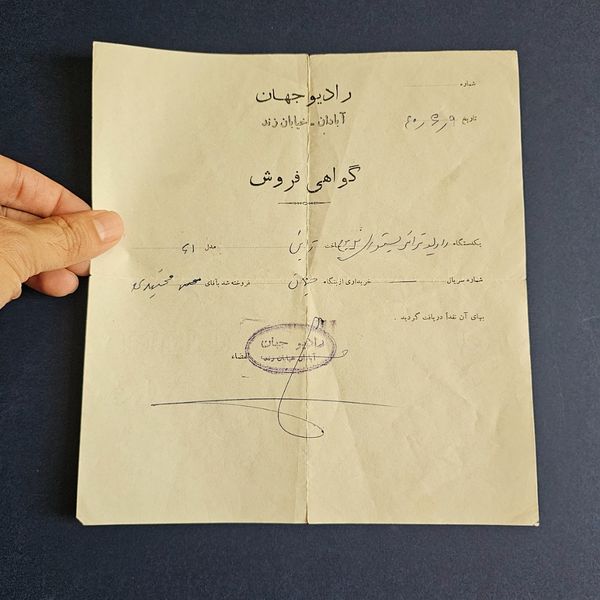 رادیو جهان
آبادان - خیابان زند
شماره
تاریخ ۹ ر ۶ ر ۴۰
گواهی فروش
یکدستگاه رادیو ترانزیستوری ساخت ژاپن مدل ۶۱
شماره سریال خریداری از بنگاه فروخته شد بآقای
بهای آن نقداً دریافت گردید .
امضاء
رادیو جهان
آبادان خیابان زند